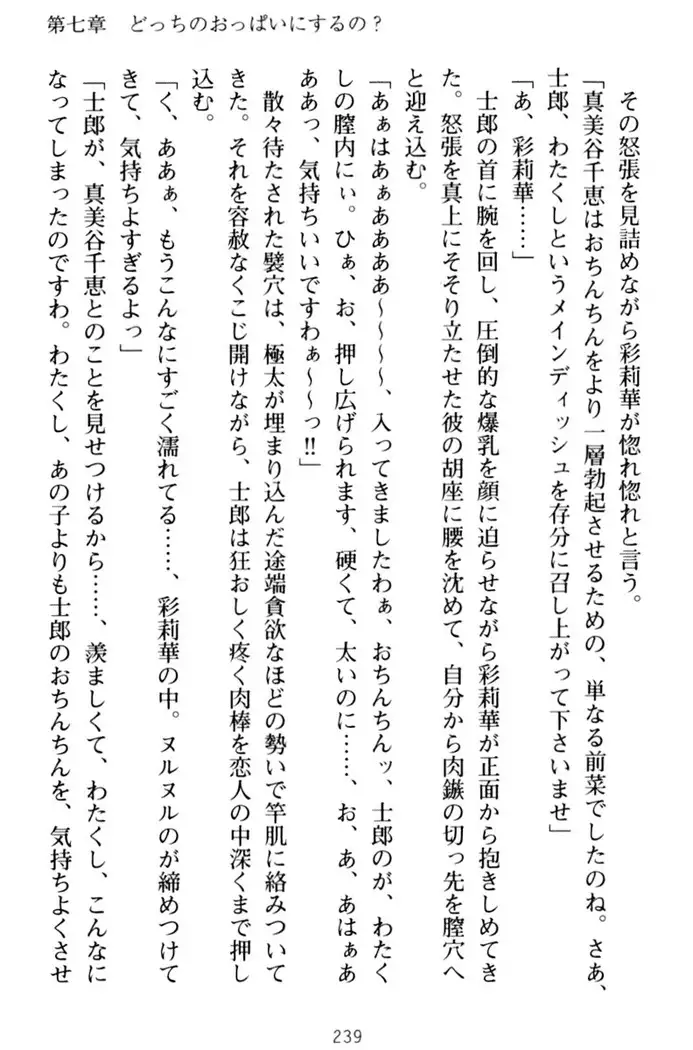 第七章　どっちのおっぱいにするの？
その怒張を見詰めながら彩莉華が惚れ惚れと言う。
「真美谷千恵はおちんちんをより一層勃起させるための、単なる前菜でしたのね。さあ、
士郎、わたくしというメインディッシュを存分に召し上がって下さいませ」
「あ、彩莉華……」
士郎の首に腕を回し、圧倒的な爆乳を顔に迫らせながら彩莉華が正面から抱きしめてき
た。怒張を真上にそそり立たせた彼の胡座に腰を沈めて、自分から肉鏃の切っ先を膣穴へ
と迎え込む。
「あぁはあぁああああ～～～～、入ってきましたわぁ、おちんちんッ、士郎のが、わたく
しの膣内にぃ。ひぁ、お、押し広げられます、硬くて、太いのに……、お、あ、あはぁあ
ああっ、気持ちいいですわぁ～～っ!!」
散々待たされた襞穴は、極太が埋まり込んだ途端貪欲なほどの勢いで竿肌に絡みついて
きた。それを容赦なくこじ開けながら、士郎は狂おしく疼く肉棒を恋人の中深くまで押し
込む。
「く、ああぁ、もうこんなにすごく濡れてる……、彩莉華の中。ヌルヌルのが締めつけて
きて、気持ちよすぎるよっ」
「士郎が、真美谷千恵とのことを見せつけるから……、羨ましくて、わたくし、こんなに
なってしまったのですわ。わたくし、あの子よりも士郎のおちんちんを、気持ちよくさせ
239